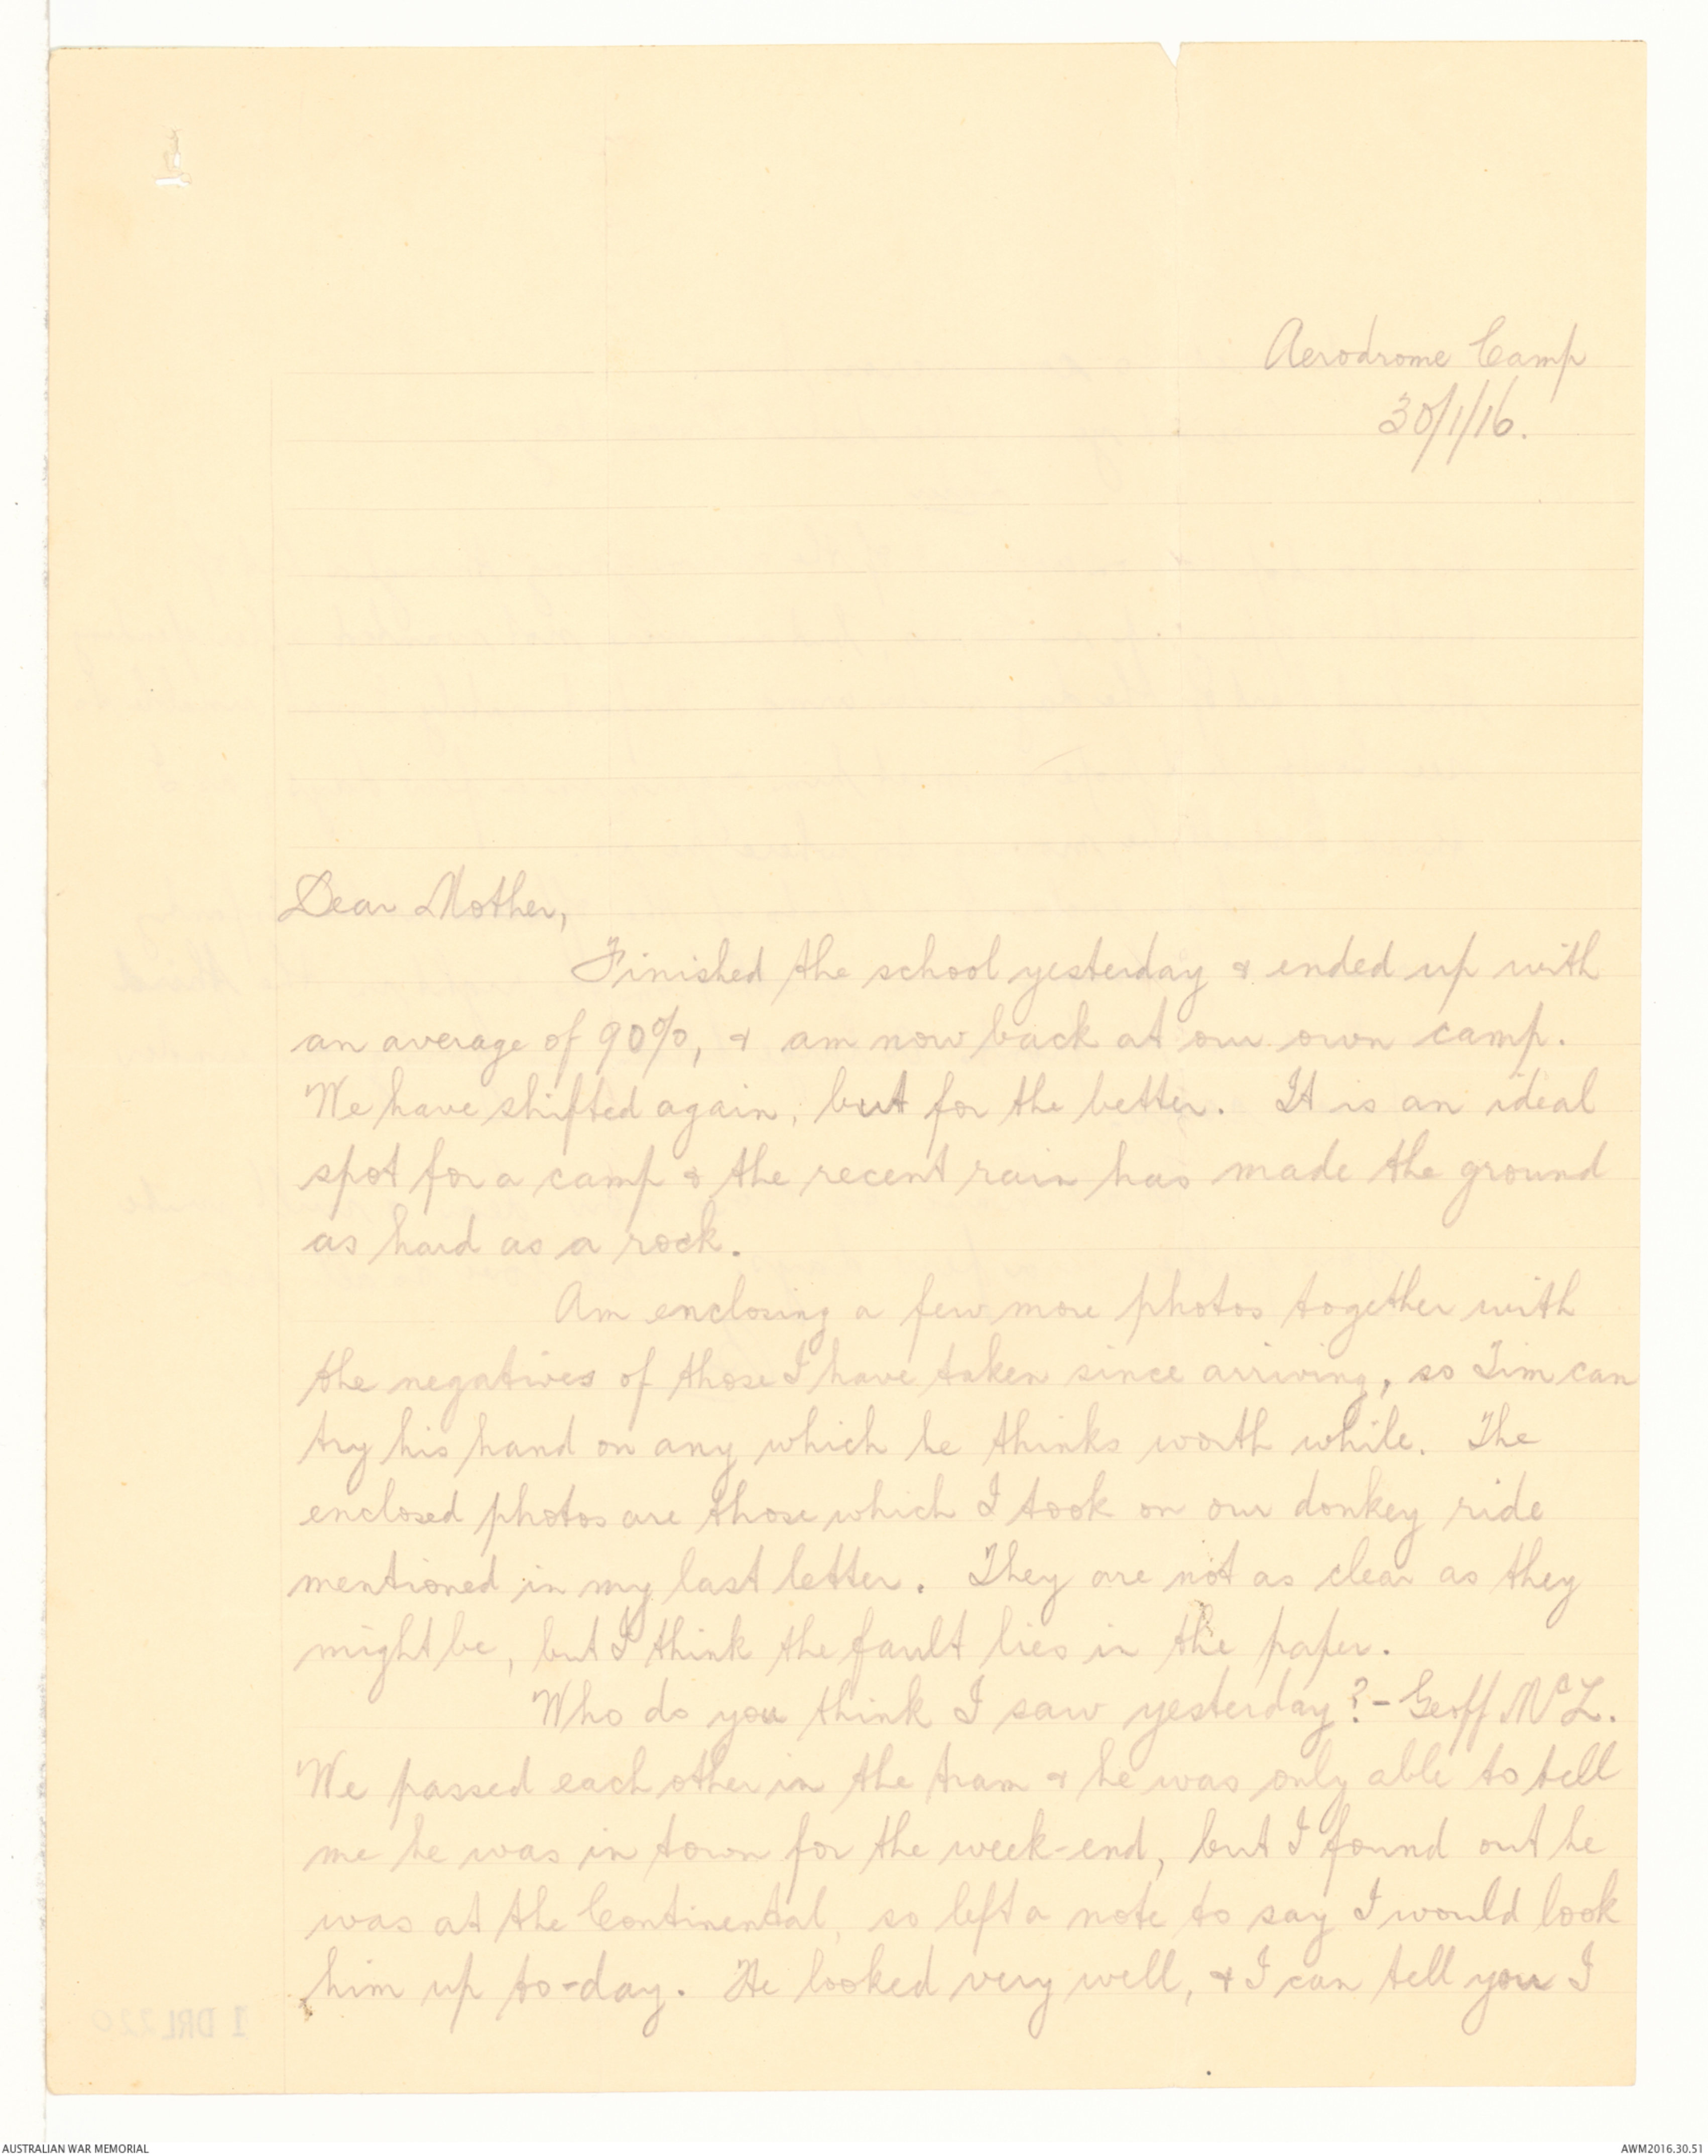 Aerodrome Camp
30/1/16.
Dear Mother,
Finished the school yesterday & ended up with
an average of 90%, & am now back at our own camp.
We have shifted again, but for the better. It is an ideal
spot for a camp & the recent rain has made the ground
as hard as a rock.
Am enclosing a few more photos together with
the negatives of those I have taken since arriving, so Tim can
try his hand on any which he thinks worth while. The
enclosed photos are those which I took on our donkey ride
mentioned in my last letter. They are not as clear as they
might be, but I think the fault lies in the paper.
Who do you think I saw yesterday? - Geoff McL.
We passed each other in the tram & he was only able to tell
me he was in town for the week-end, but I found out he
was at the Continental, so left a note to say I would look
him up to-day. He looked very well, & I can tell you I
1 DRL 220
AUSTRALIAN WAR MEMORIAL
AWM2016.30.51